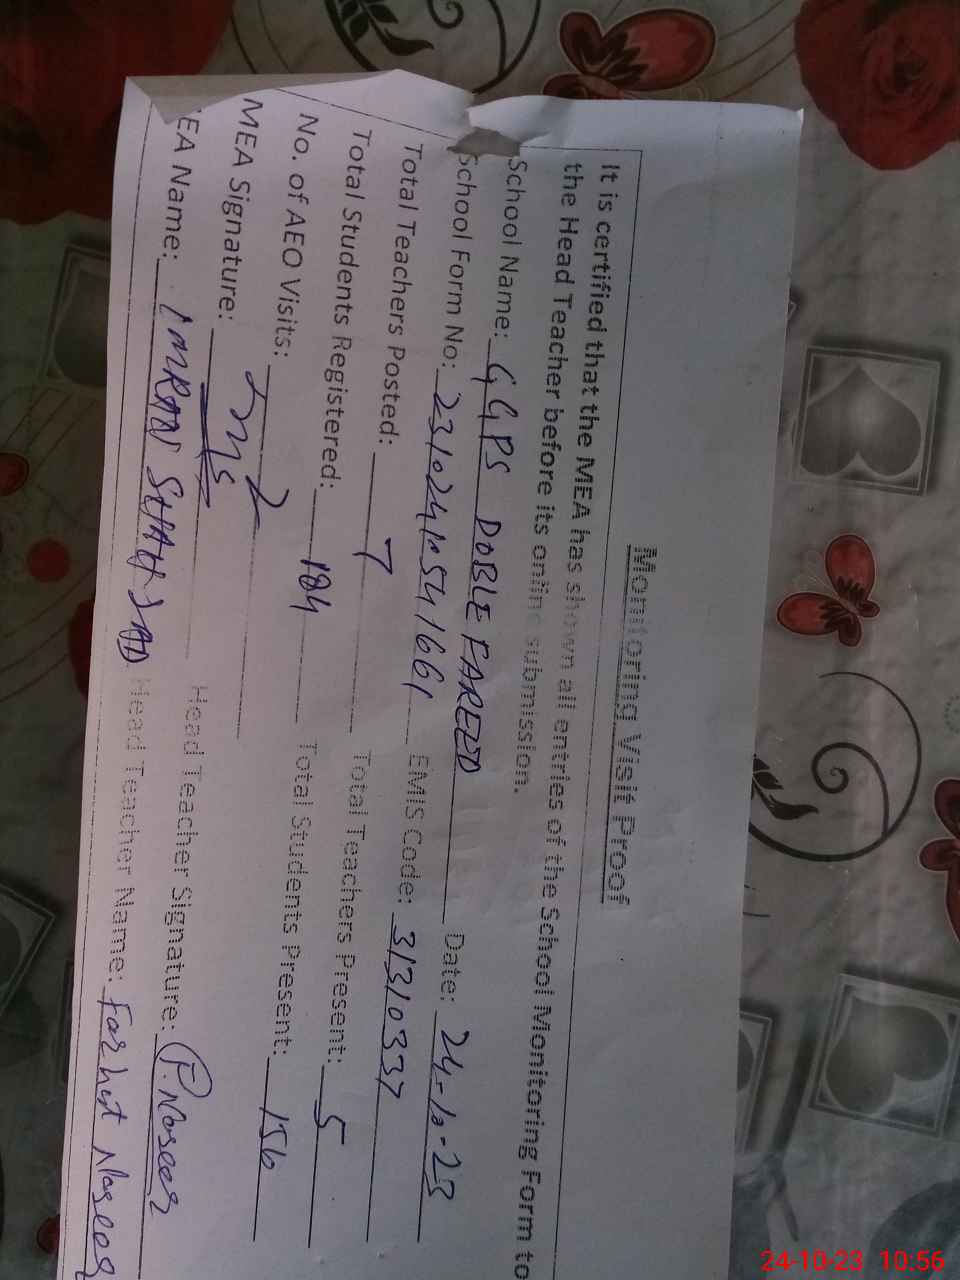 Monitoring Visit Proof
It is certified that the MEA has shown all entries of the School Monitoring Form to
the Head Teacher before its online submission.
School Name: GGPS DOBLE FAREED Date: 24-10-23
School Form No: 23102410541661 EMIS Code: 31310337
Total Teachers Posted: 7 Total Teachers Present: 5
Total Students Registered: 184 Total Students Present: 156
No. of AEO Visits: 2
MEA Signature: Head Teacher Signature: F.Naseer
EA Name: IMRAN SHAHZAD Head Teacher Name: Farhat Naseer
24-10-23 10:56